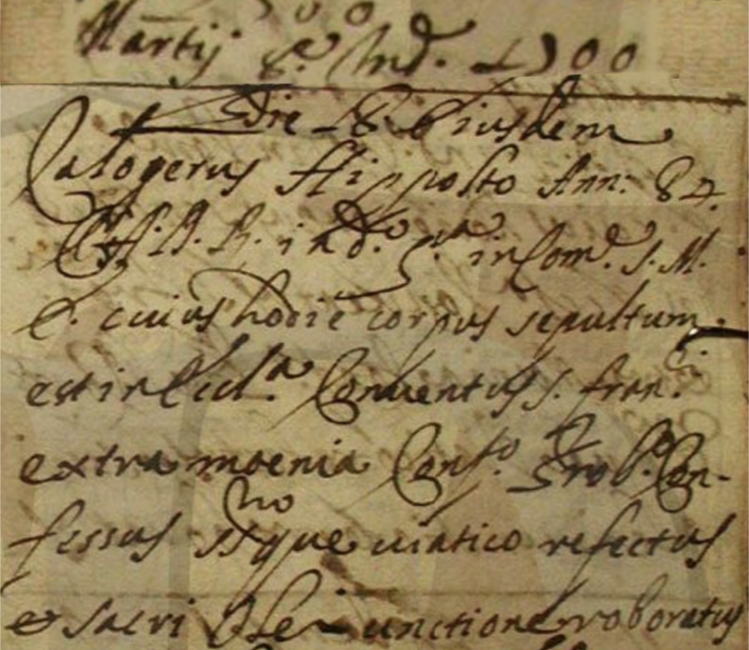 Martij 8.ᵃ Ind. 1700
die 18 Eiusdem
Calogerus Hippolito Ann: 84.
in Dᵒ. in Comᵉ. S. M.
E. cuius hodie corpus sepultum
est in Eccl.ᵃ Conventus S. Fran.ᶜⁱ
extra moenia Conf.ᵒ Prob.ᵒ Con-
fessus SSᵐᵒque viatico refectus
et sacri Olei unctione roboratus